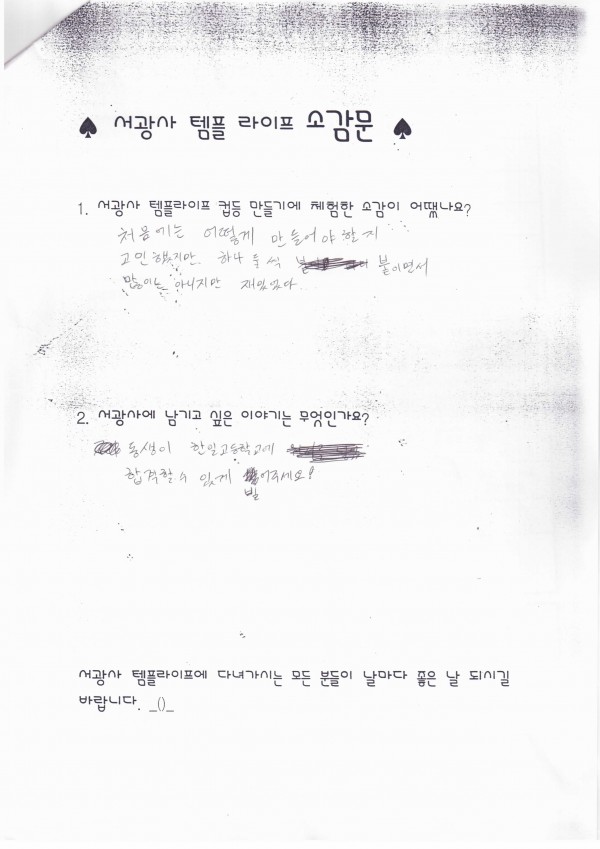 ♠ 서광사 템플 라이프 소감문 ♠
1. 서광사 템플라이프 컵등 만들기에 체험한 소감이 어땠나요?
처음에는 어떻게 만들어야 할지
고민했지만. 하나 둘 씩 붙이면서
많이는 아니지만 재밌었다.
2. 서광사에 남기고 싶은 이야기는 무엇인가요?
동생이 한일고등학교에
합격할 수 있게 빌어주세요!
서광사 템플라이프에 다녀가시는 모든 분들이 날마다 좋은 날 되시길
바랍니다. _()_